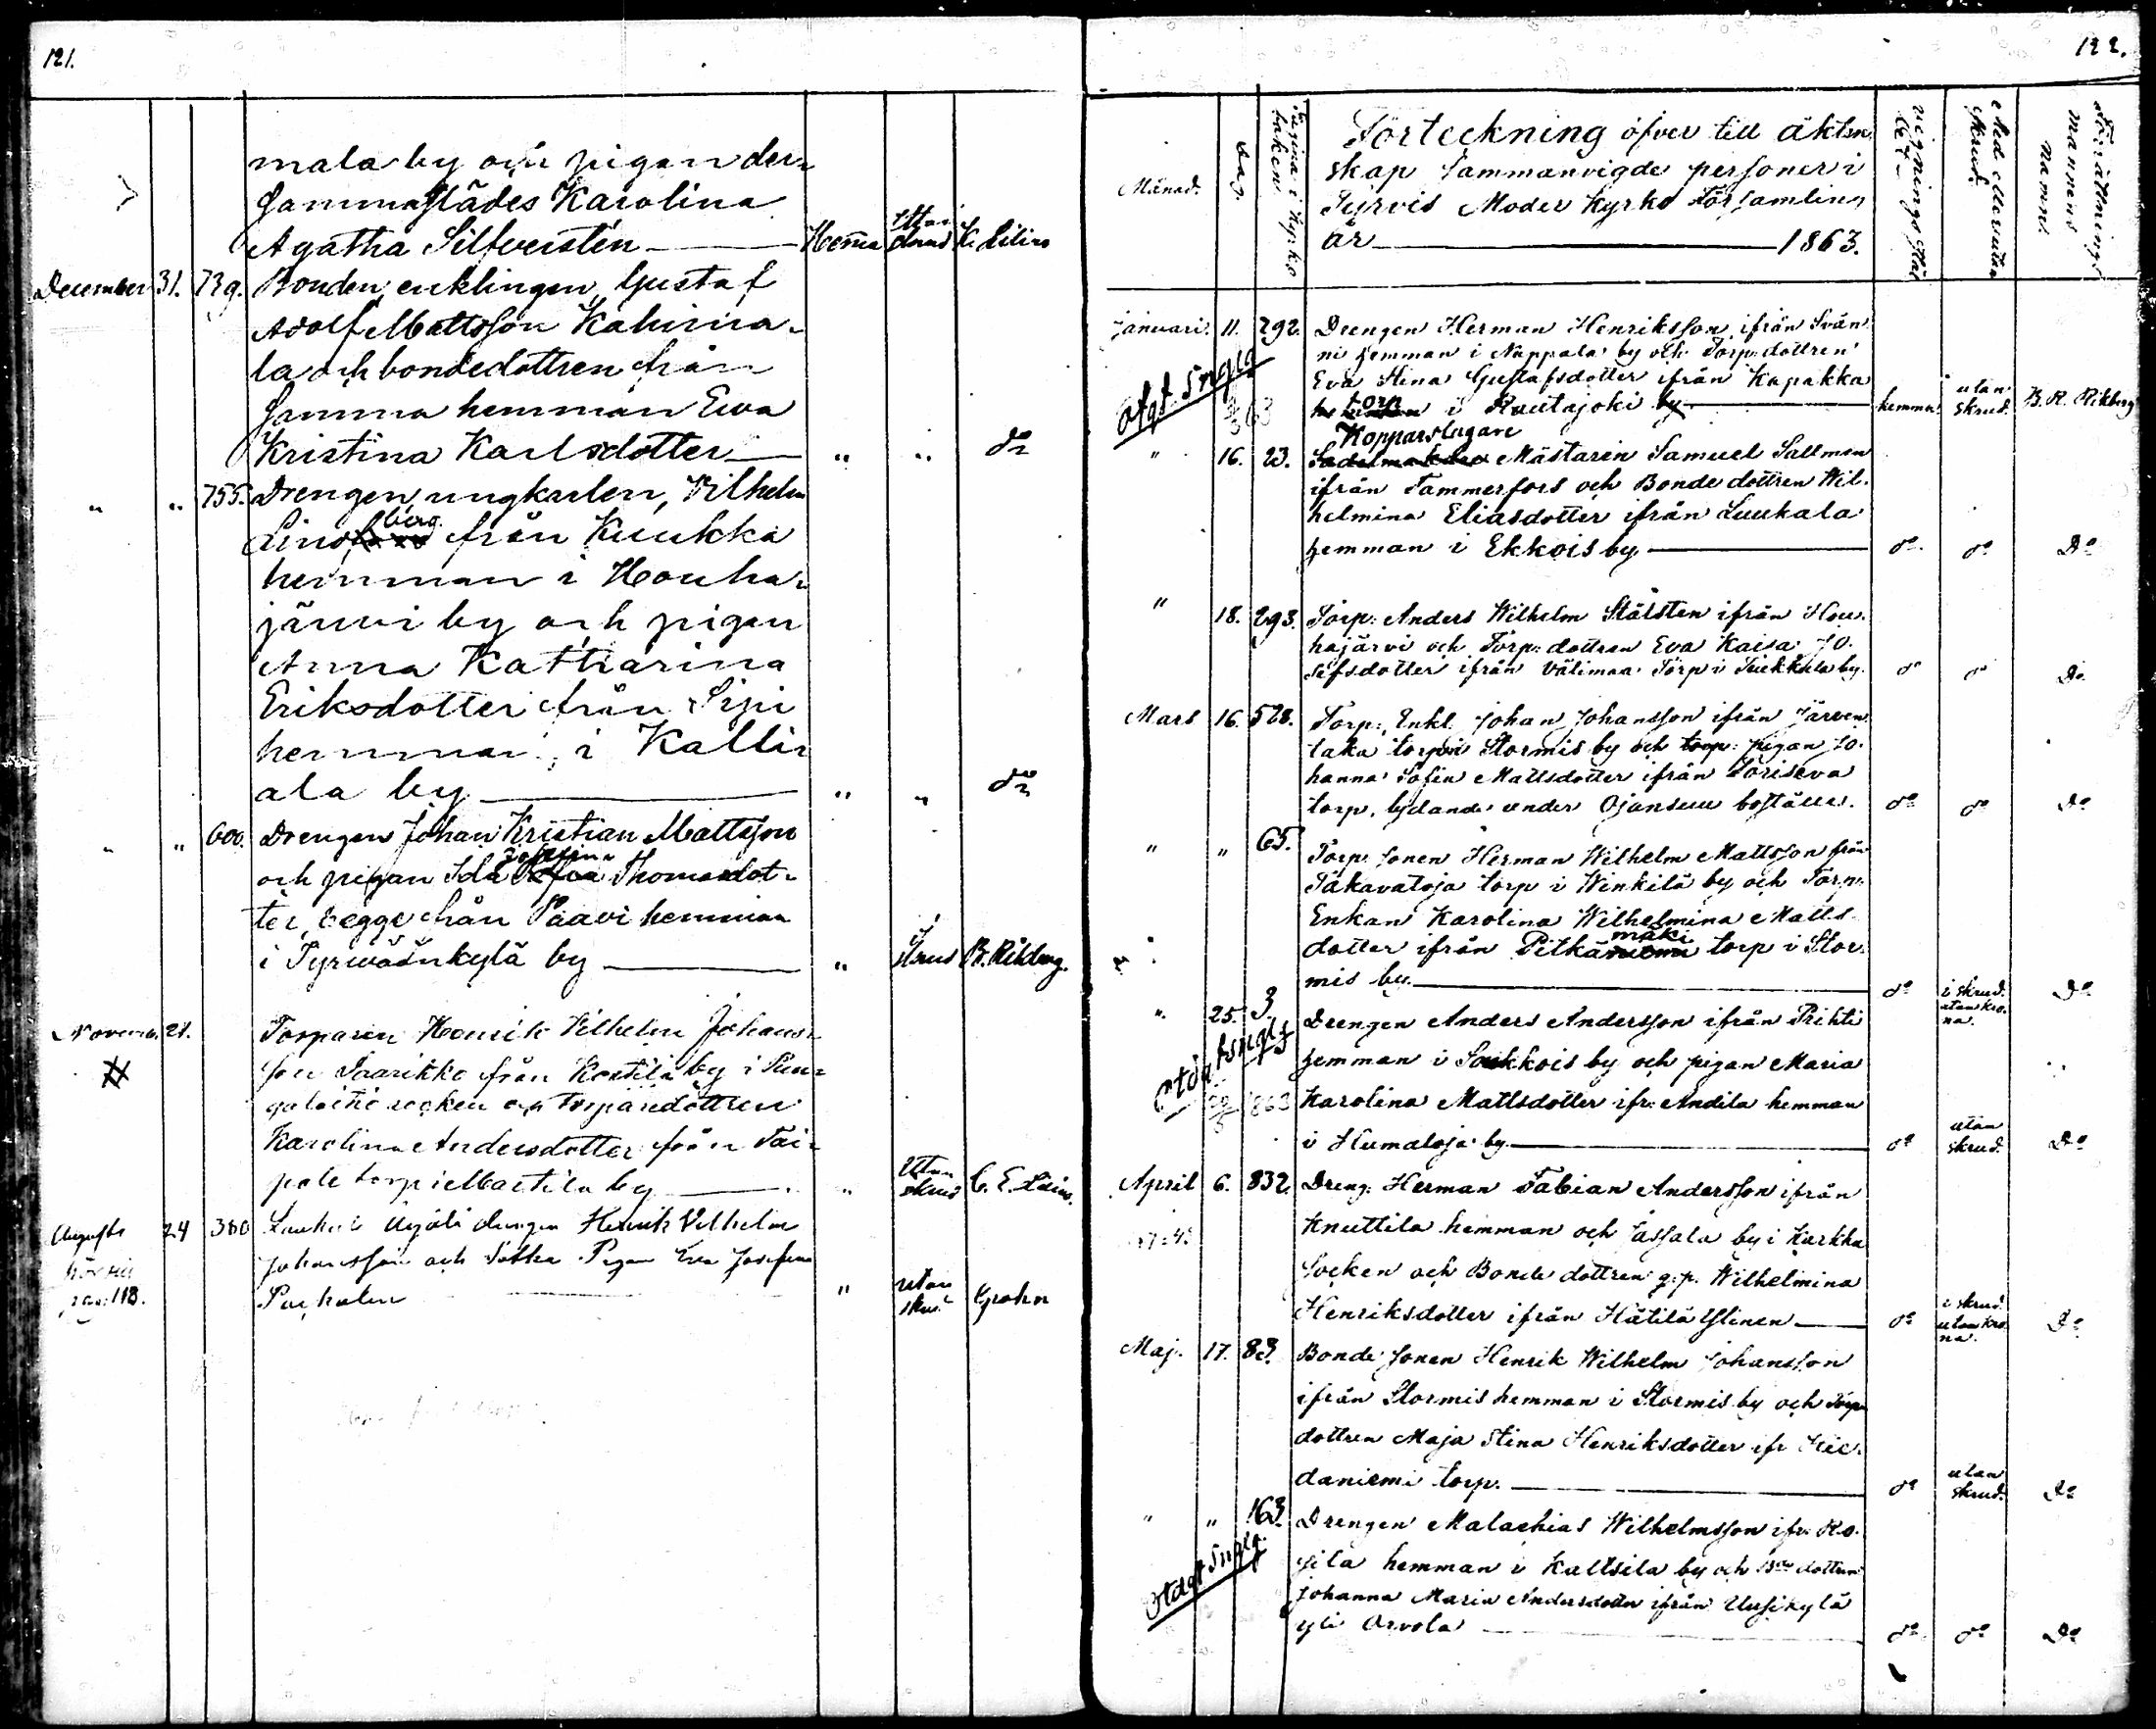 121.
mala by och pigan der-
sammastädes Karolina
Agatha Silfverstén Hema utan skrud
December 31. 739. Bonden, enklingen, Gustaf
Adolf Mattsson
la och bondedottren från
samma hemman Ewa
Kristina Karlsdotter " " do
" " 755. Drengen, ungkarlen, Vilhelm
Lindberg från Kuukka
hemman i Houha-
järwi by och pigan
Anna Katharina
Eriksdotter från Sipi
hemman i Kalli-
ala by " " do
" " 600. Drengen Johan Kristian Mattsson
och pigan Ida Josefina Thomasdot-
ter, begge från Paavi hemman
i Tyrwäänkylä by " i skrud B. Rikberg.
Novemb. 21. Torparen Henrik Vilhelm Johans-
son Saarikko från Kostilä by i Pun-
galaitio socken och torparedottren
Karolina Andersdotter från Tai-
pale torp i Martila by " Utan skrud
Augusti 24 380 Drengen Henrik Vilhelm
Johansson och Pigan Eva Josefina
" utan skrud Grohn
pag. 118.
122.
Månad. Dag. Pagina i Kyrko boken
Förteckning öfver till äkten-
skap Sammanvigde personer i
Tyrvis Moder Kyrko Församling
år 1863.
Med eller utan Skrud.
Förrättnings mannens namn.
Januari. 11. 292. Drengen Herman Henriksson ifrån Svän-
ni hemman i Nuppala by och Torp: dottren
Eva Stina Gustafsdotter ifrån Kapakka
torp i Rautajoki by hemma. utan skrud. B. R. Rikberg
Kopparslagare
" 16. 23. Sadelmakare Mästaren Samuel Sallmen
ifrån Tammerfors och Bonde dottren Wil-
helmina Eliasdotter ifrån Luukala
hemman i Ekkois by do do Do
" 18. 293. Torp: Anders Wilhelm Stålsten ifrån Hou-
hajärvi och Torp: dottren Eva Kaisa Jo-
sefsdotter ifrån Välimaa Torp i by. do do Do
Mars 16. 528. Torp: Enkl. Johan Johansson ifrån Järven-
taka torp i Stormis by och torp: pigan Jo-
hanna Sofia Mattsdotter ifrån Soriseva
torp, lydande under Ojansuu boställe. do do Do
" " 65. Torp: sonen Herman Wilhelm Mattsson från
Takavatoja torp i Winkilä by och Torp:
Enkan Karolina Wilhelmina Matts-
dotter ifrån Pitkämäki torp i Stor-
mis by. do i skrud. utan krona. Do
" 25. 3. Drengen Anders Andersson ifrån Prihti
hemman i Soukkois by och pigan Maria
Karolina Mattsdotter ifr: Andila hemman
i Humaloja by do utan skrud. Do
April 6. 832. Dreng: Herman Fabian Andersson ifrån
Knuttila hemman och Lassala by i Karkku
Socken och Bonde dottren g: p. Wilhelmina
Henriksdotter ifrån Hätilä Ylinen do i skrud. utan krona. Do
Maj. 17. 83. Bonde sonen Henrik Wilhelm Johansson
ifrån Stormis hemman i Stormis by och Torp
dottren Maja Stina Henriksdotter ifr Hie-
daniemi torp. do utan skrud. Do
" " 163. Drengen Malachias Wilhelmsson ifr: Ro-
hemman i Kaltsila by och dottren
Johanna Maria Andersdotter ifrån Uusikylä
yli Arvola do do Do